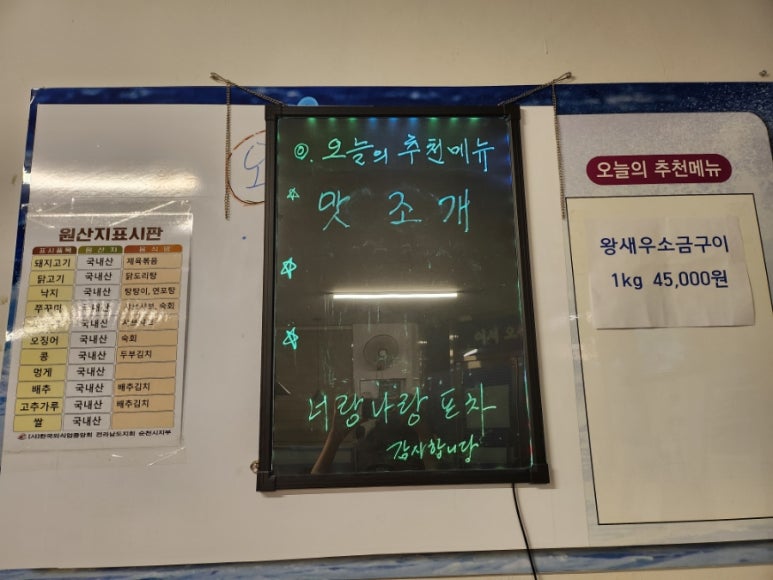 원산지표시판
표시품목 원산지 음식명
돼지고기 국내산 제육볶음
닭고기 국내산 닭도리탕
낙지 국내산 탕탕이, 연포탕
쭈꾸미 국내산 샤브샤브, 숙회
국내산
오징어 국내산 숙회
콩 국내산 두부김치
멍게 국내산
배추 국내산 배추김치
고추가루 국내산 배추김치
쌀 국내산
(사)한국외식업중앙회 전라남도지회 순천시지부
오
◎. 오늘의 추천메뉴
☆ 맛 조개
☆
☆
너랑나랑 포차
감사합니다
오늘의 추천메뉴
왕새우소금구이
1kg 45,000원